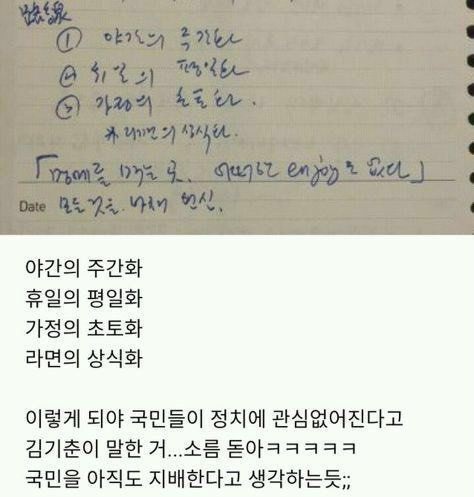 路線
① 야간의 주간화
② 휴일의 평일화
③ 가정의 초토화.
※라면의 상식화.
「명예를 먹는 곳. 어떠한 enjoy도 없다」
Date 모든 것을 바쳐 헌신.
야간의 주간화
휴일의 평일화
가정의 초토화
라면의 상식화
이렇게 되야 국민들이 정치에 관심없어진다고
김기춘이 말한 거...소름 돋아ㅋㅋㅋㅋㅋ
국민을 아직도 지배한다고 생각하는듯;;